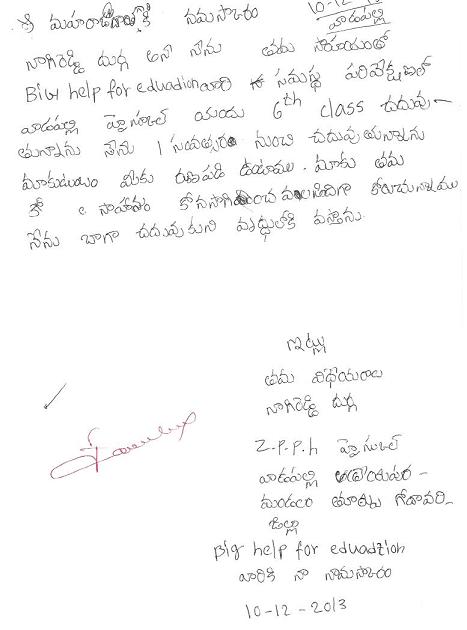 10-12-13
వాడపల్లి
శ్రీ మహారాజ గారికి నమస్కారం
నాగిరెడ్డి దుర్గ అనే నేను తమ సాహయంతో
Big help for eduadion వారి సమస్థ పరివేక్షణలో
వాడపల్లి హైస్కూల్ యందు 6th class చదువు-
తున్నాను నేను 1 సంవత్సరం నుంచి చదువుతున్నాను
మాకుటుంబం మీకు రుణపడి ఉంటాము. మాకు తమ
సాహయం కోనసాగించ వలసిందిగా కోరుచున్నాము
నేను బాగా చదువుకుని వృద్ధులోకి వస్తాను.
ఇట్లు
తమ విధేయరాలు
నాగిరెడ్డి దుర్గ
Z.P.P.h హైస్కూల్
వాడపల్లి ఆత్రేయపురం-
మండలం తూర్పు గోదావరి-
జిల్లా
Big help for eduadzion
వారికి నా నామస్కారం
10-12-2013